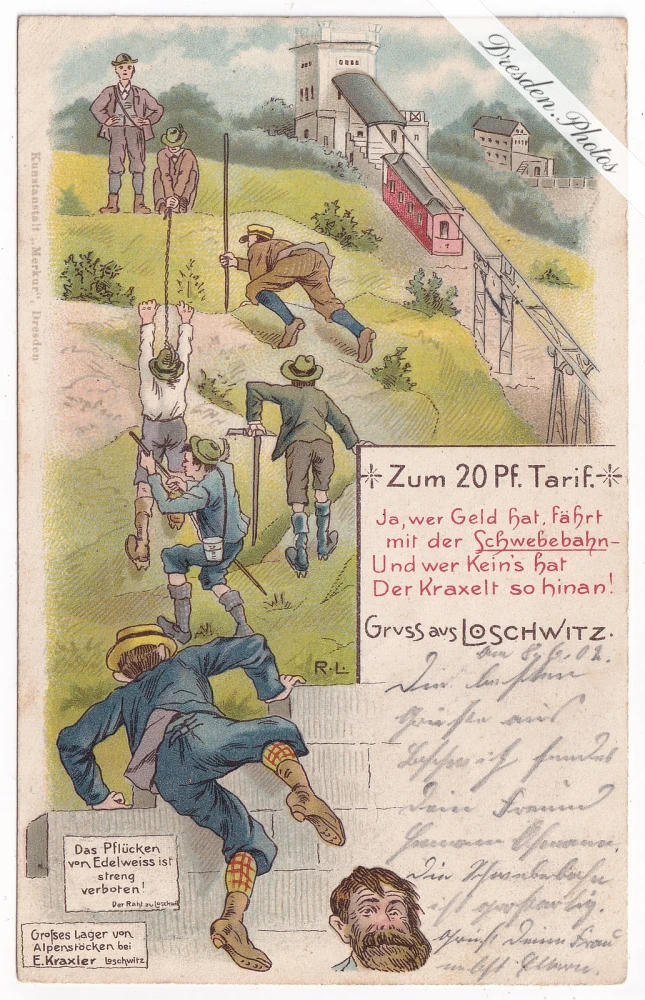 Dresden.Photos
Kunstanstalt „Merkur", Dresden
Zum 20 Pf. Tarif.
Ja, wer Geld hat, fährt
mit der Schwebebahn-
Und wer Kein's hat
Der Kraxelt so hinan!
Gruss aus LOSCHWITZ.
R.L.
am 8.6.02.
Die besten
Grüße aus
Loschwitz sendet
Dein Freund
Hermann
Die Schwebebahn
ist großartig.
Gruß Deine Frau
nebst Eltern.
Das Pflücken
von Edelweiss ist
streng
verboten!
Der Rath zu Loschwitz
Grofses Lager von
Alpenstöcken bei
E. Kraxler Loschwitz